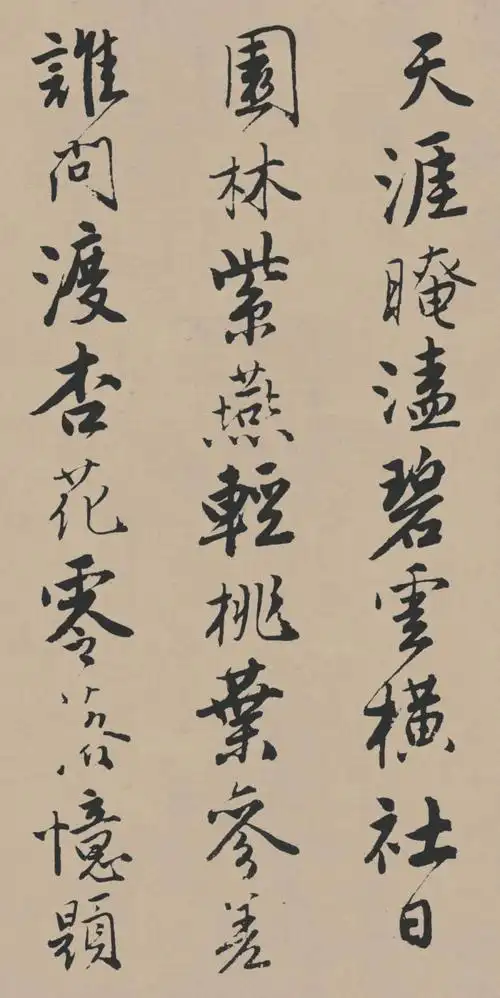 天涯晻溘碧雲橫社日
園林紫燕輕桃葉參差
誰問渡杏花零落憶題